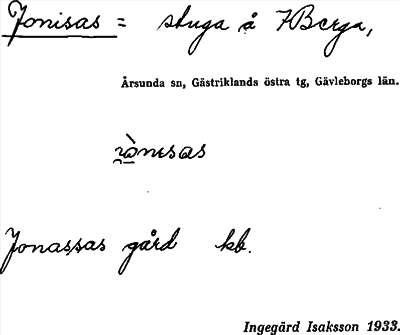 Jonisas = stuga å 7 Berga,
Årsunda sn, Gästriklands östra tg, Gävleborgs län.
Jonassas gård kb.
Ingegärd Isaksson 1933.